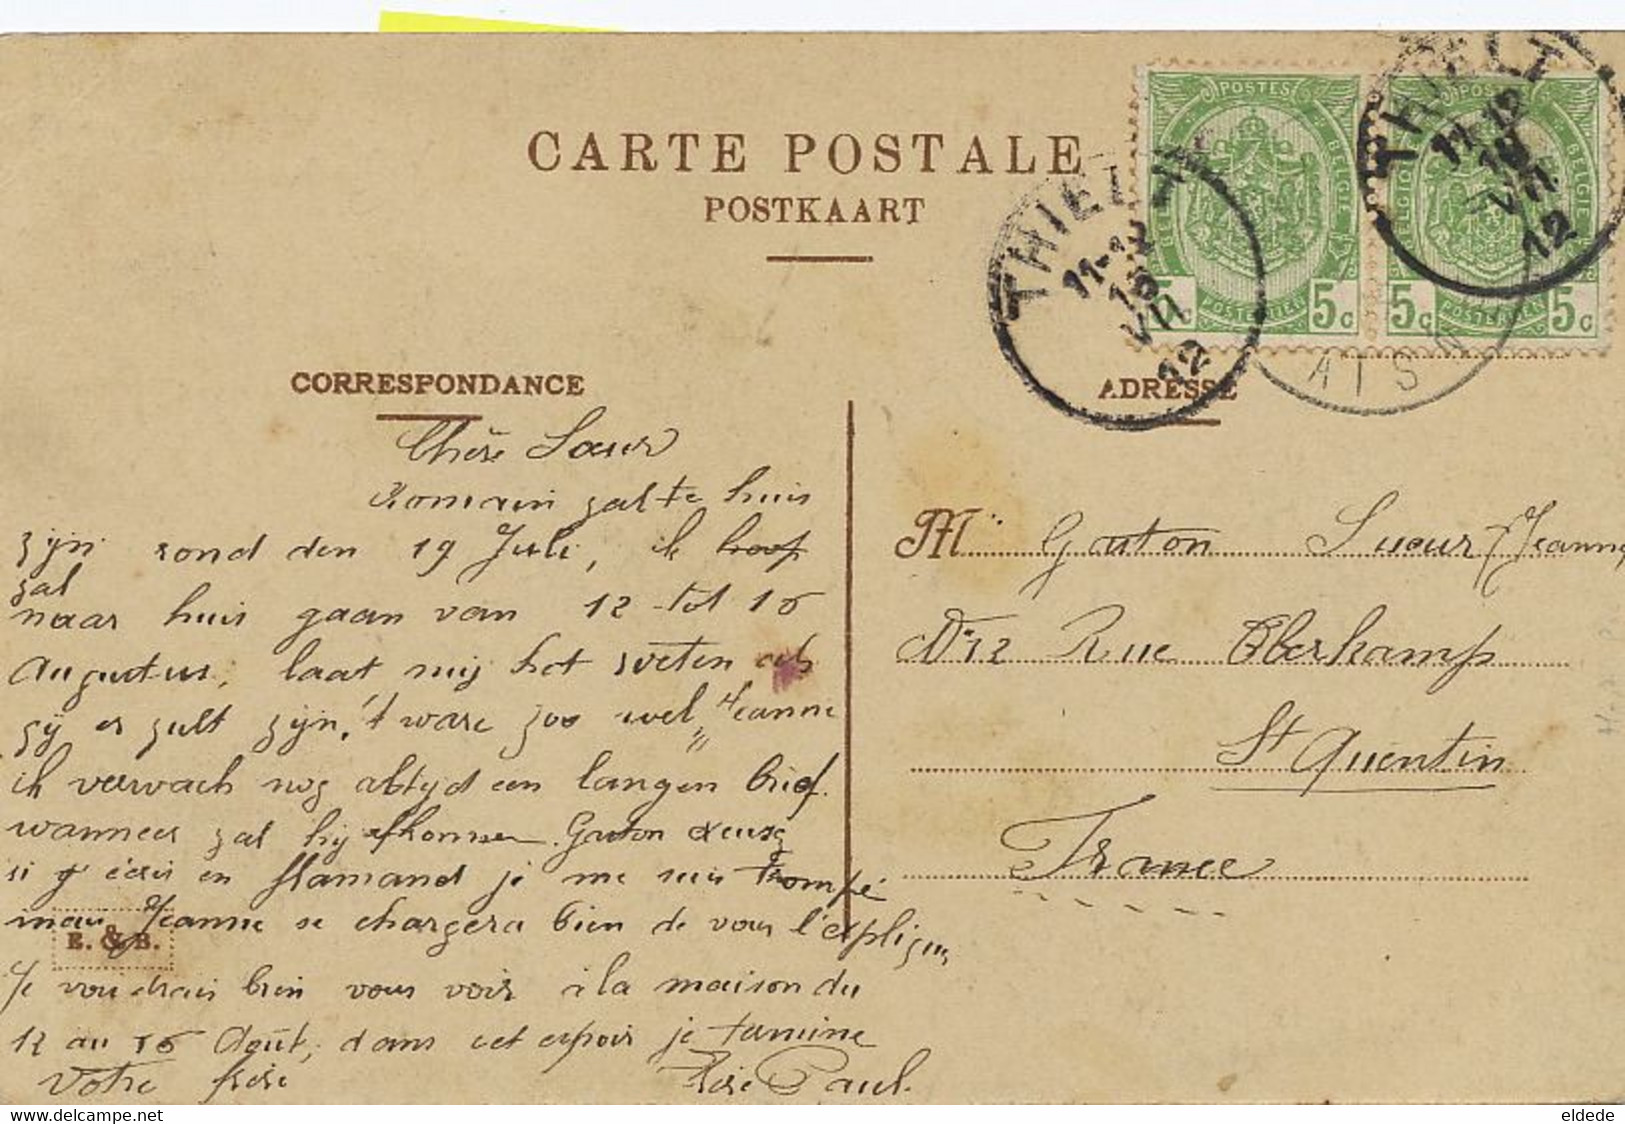 CARTE POSTALE
POSTKAART
POSTES
BELGIQUE
BELGIE
POSTERIJEN
5c
5c
POSTES
BELGIQUE
BELGIE
POSTERIJEN
5c
5c
THIELT
11-12
16
VII
12
THIELT
11-12
VII
12
AISN
CORRESPONDANCE
Chère Soeur
Romain zal te huis
zijn rond den 19 Juli, ik hoop
zal
naar huis gaan van 12 tot 16
Augustus, laat mij het weten als
gij er zult zijn, 't ware zoo wel, Jeanne
ik verwach nog altijd een langen brief.
wanneer zal hij afkomen. Gaston
si j'écris en flamand je me suis trompé
mais Jeanne se chargera bien de vous l'expliquer
Je voudrais bien vous voir à la maison du
12 au 16 Août, dans cet espoir je termine
Votre frère Père Paul.
E. & B.
ADRESSE
Mr Gaston Sueur Jeanne
No 12 Rue Oberkamp
St Quentin
France
eldede
delcampe.net